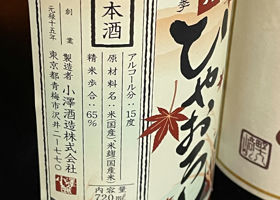 季
ひやおろ
本酒
アルコール分：15度
原材料名：米(国産)、米麹(国産米)
精米歩合：65%
内容量
720ml
創業
元禄十五年
製造者
小澤酒造株式会社
東京都青梅市沢井二ー七七〇